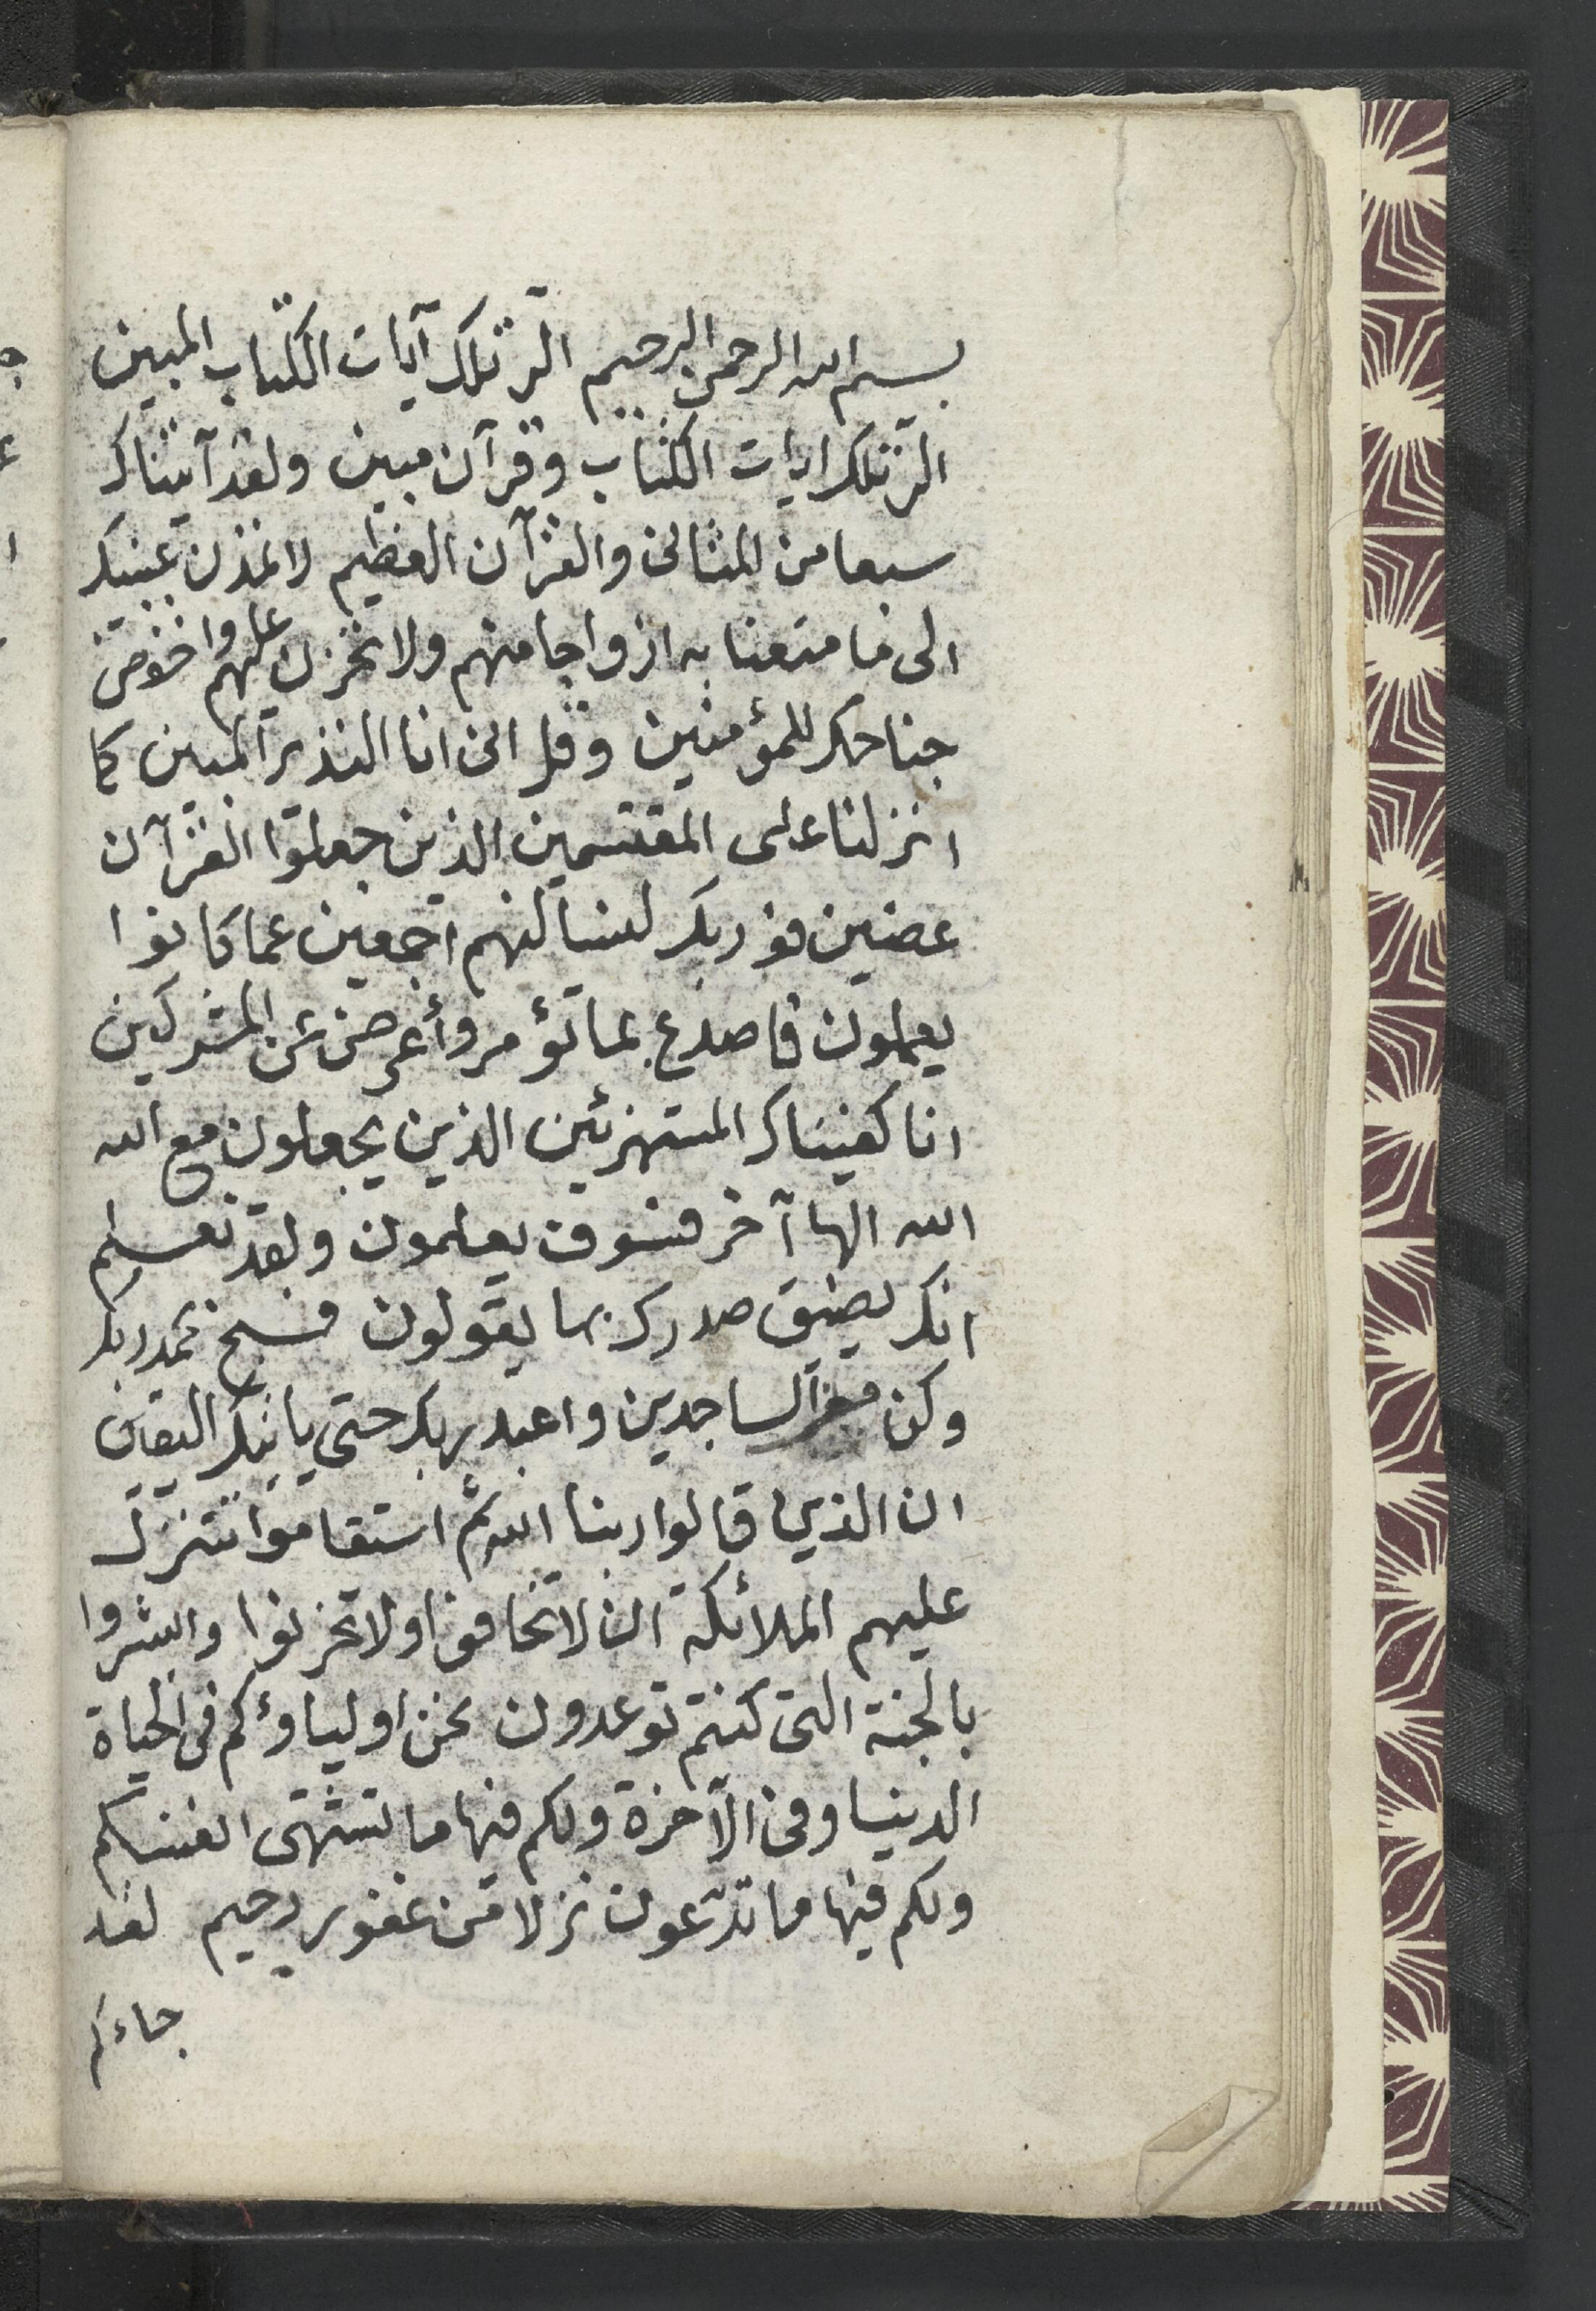 بسم الله الرحمن الرحيم الر تلك آيات الكتاب المبين
الر تلك ايات الكتاب وقرآن مبين ولقد آتيناك
سبعا من المثانى والقرآن العظيم لا تمدن عينيك
الى ما متعنا به ازواجا منهم ولا تحزن عليهم واخفض
جناحك للمؤمنين وقل انى انا النذير المبين كما
انزلنا على المقتسمين الذين جعلوا القرآن
عضين فوربك لنسالنهم اجمعين عما كانوا
يعملون فاصدع بما تؤمر وأعرض عن المشركين
انا كفيناك المستهزئين الذين يجعلون مع الله
الله الها آخر فسوف يعلمون ولقد نعلم
انك يضيق صدرك بما يقولون فسبح بحمد ربك
وكن من الساجدين واعبد ربك حتى ياتيك اليقين
ان الذين قالوا ربنا الله ثم استقاموا تتنزل
عليهم الملائكة ان لا تخافوا ولا تحزنوا وابشروا
بالجنة التى كنتم توعدون نحن اولياؤكم فى الحياة
الدنيا وفى الآخرة ولكم فيها ما تشتهى انفسكم
ولكم فيها ما تدّعون نزلا من غفور رحيم لقد
جاءكم